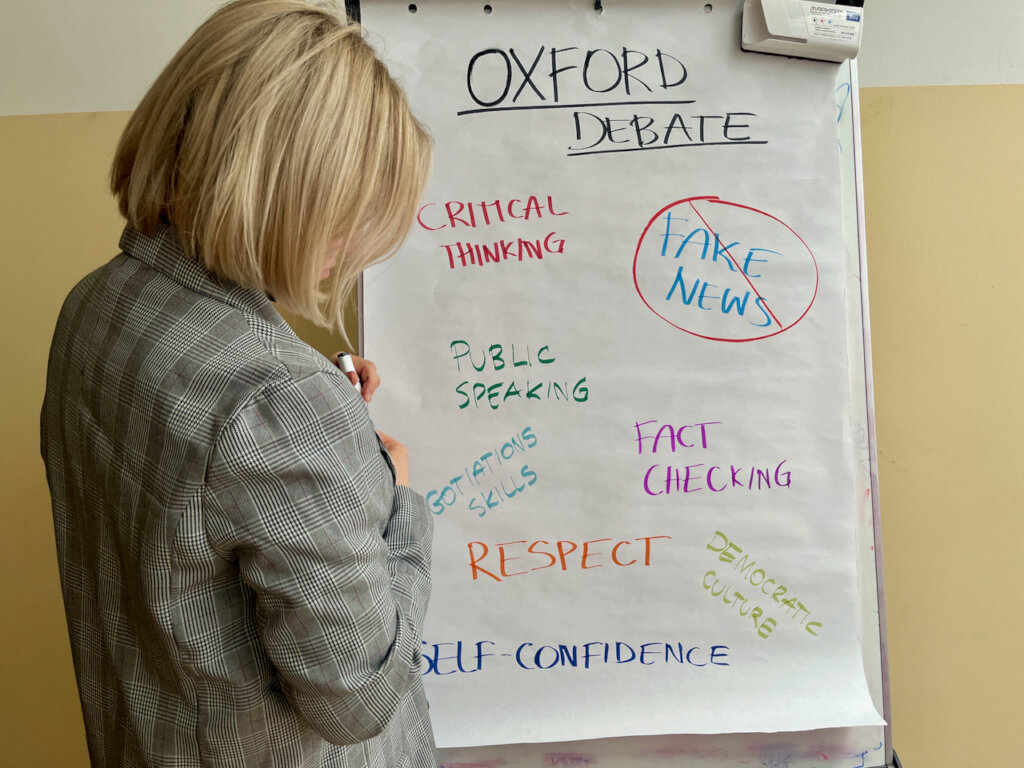 OXFORD
DEBATE
CRITICAL
THINKING
FAKE
NEWS
PUBLIC
SPEAKING
GOTIATIONS
SKILLS
FACT
CHECKING
RESPECT
DEMOCRATIC
CULTURE
SELF-CONFIDENCE